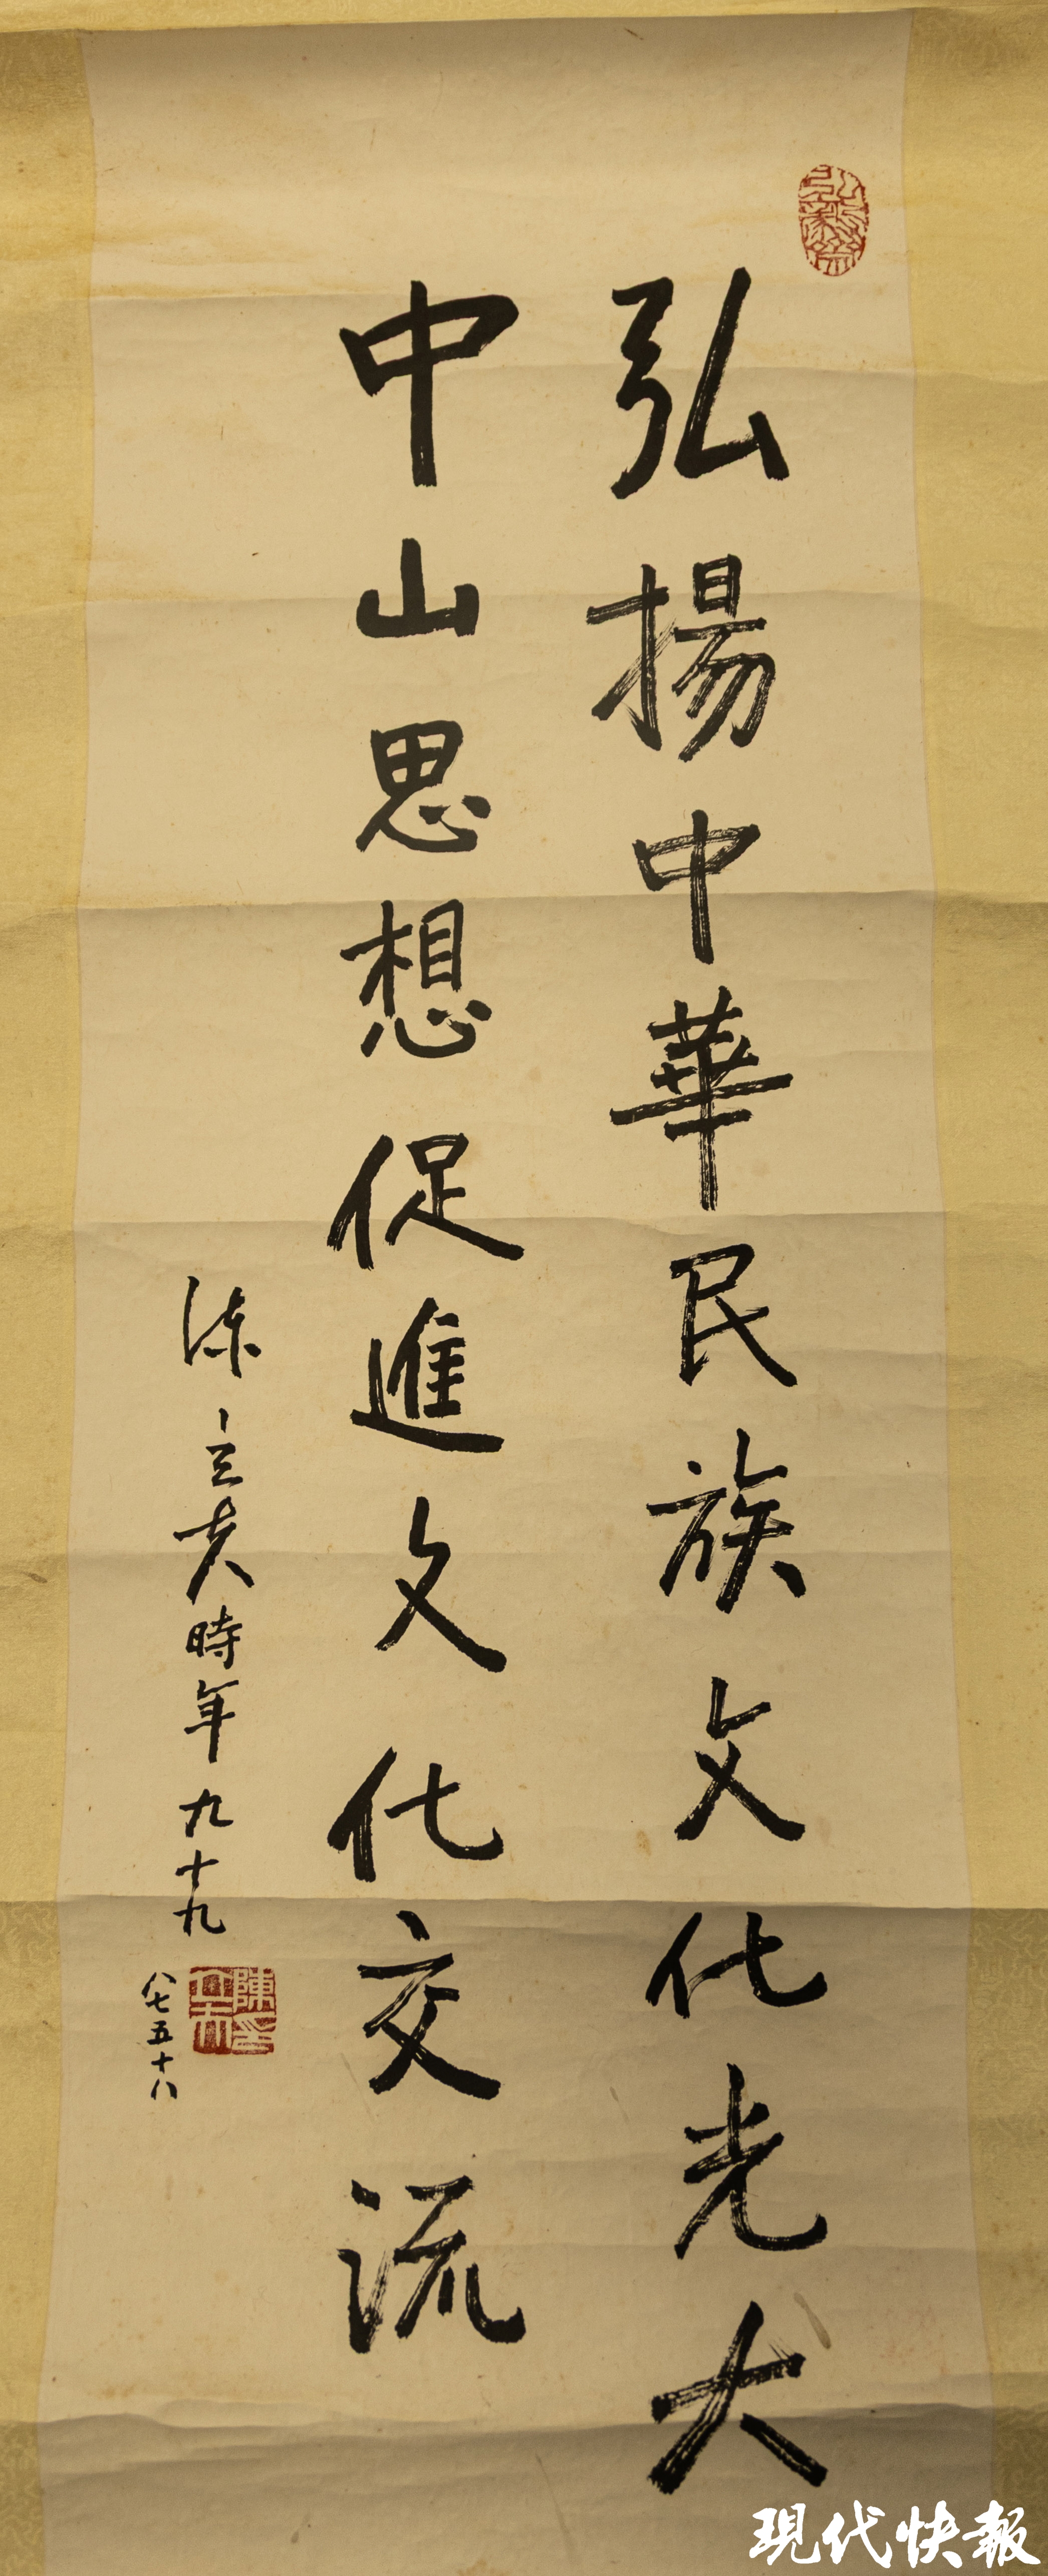 弘揚中華民族文化光大
中山思想促進文化交流
陳立夫時年九十九
八七五十八
陳立夫印
現代快報